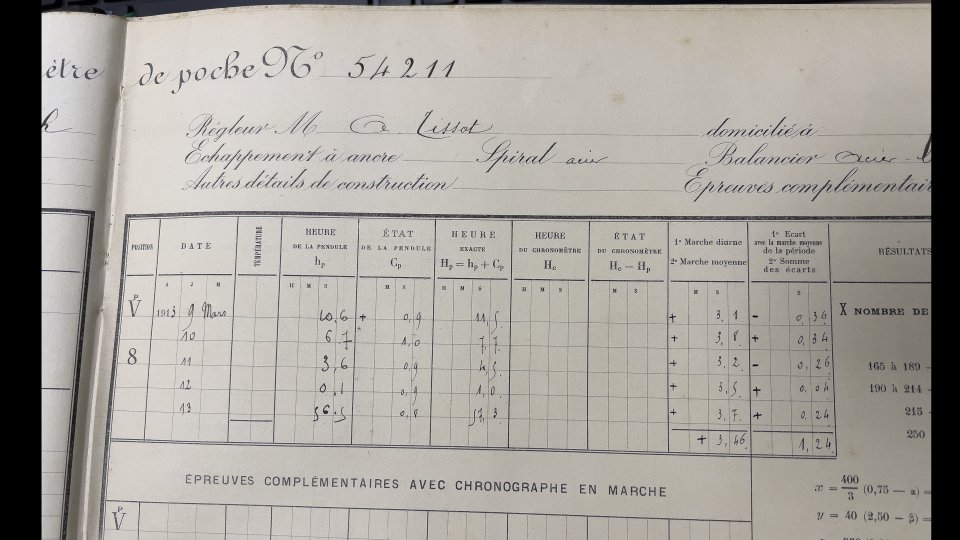 ètre de poche Nº 54211
Régleur M
domicilié à
Echappement à ancre Spiral acier Balancier acier
Autres détails de construction
Epreuves complémentair
POSITION DATE TEMPÉRATURE HEURE DE LA PENDULE hp ÉTAT DE LA PENDULE Cp HEURE EXACTE Hp = hp + Cp HEURE DU CHRONOMÈTRE Hc ÉTAT DU CHRONOMÈTRE Hc — Hp 1º Marche diurne 2º Marche moyenne 1º Ecart avec la marche moyenne de la période 2º Somme des écarts RÉSULTATS
A J M H M S M S H M S H M S M S M S S
V P 1913 9 Mars 10,6 + 0,9 11,5 + 3,1 - 0,36 X NOMBRE DE
10 6,7 " 1,0 7,7 + 3,8 + 0,34
8 11 3,6 0,9 4,5 + 3,2 - 0,26 165 à 189 -
12 0,1 0,9 1,0 + 3,5 + 0,04 190 à 214 -
13 56,5 0,8 57,3 + 3,7 + 0,24 215 -
+ 3,46 1,24 250
ÉPREUVES COMPLÉMENTAIRES AVEC CHRONOGRAPHE EN MARCHE
x = 400/3 (0,75 — α) =
V P
y = 40 (2,50 — β) =